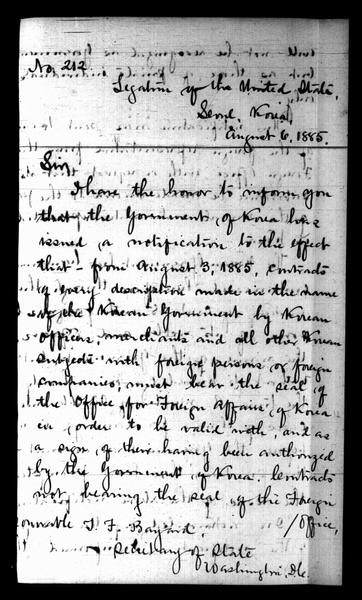 No. 212
Legation of the United States,
Seoul, Korea,
August 6, 1885.
Sir,
I have the honor to inform you
that the Government of Korea has
issued a notification to the effect
that - from August 3, 1885, contracts
of every description made in the name
of the Korean Government by Korean
Officers, merchants and all other Korean
subjects with foreign persons or foreign
companies, must bear the seal of
the Office for Foreign Affairs of Korea
in order to be valid with, and as
a sign of there having been authorized
by the Government of Korea. Contracts
not bearing the seal of the Foreign
ourable T. F. Bayard, /Office,
Secretary of State
Washington, D.C.